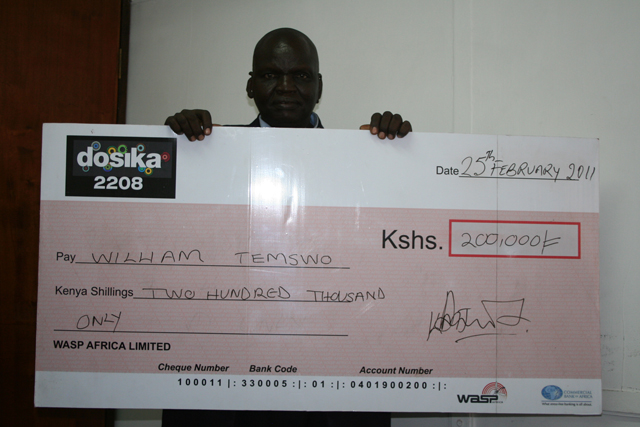 dosika
2208
Date 25TH FEBRUARY 2011
Kshs. 200,000/=
Pay WILLIAM TEMSWO
Kenya Shillings TWO HUNDRED THOUSAND
ONLY
WASP AFRICA LIMITED
Cheque Number Bank Code Account Number
100011 |: 330005 :|: 01 :|: 0401900200 :|:
WASP
COMMERCIAL
BANK OF AFRICA